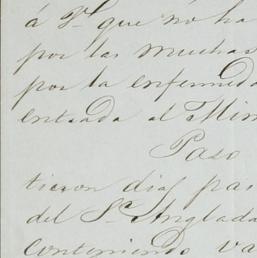 á V. que no ha
por las muchas
por la enfermeda
entrada al Min
Paso
tieron dias pas
del Sr. Anglada
conteniendo va